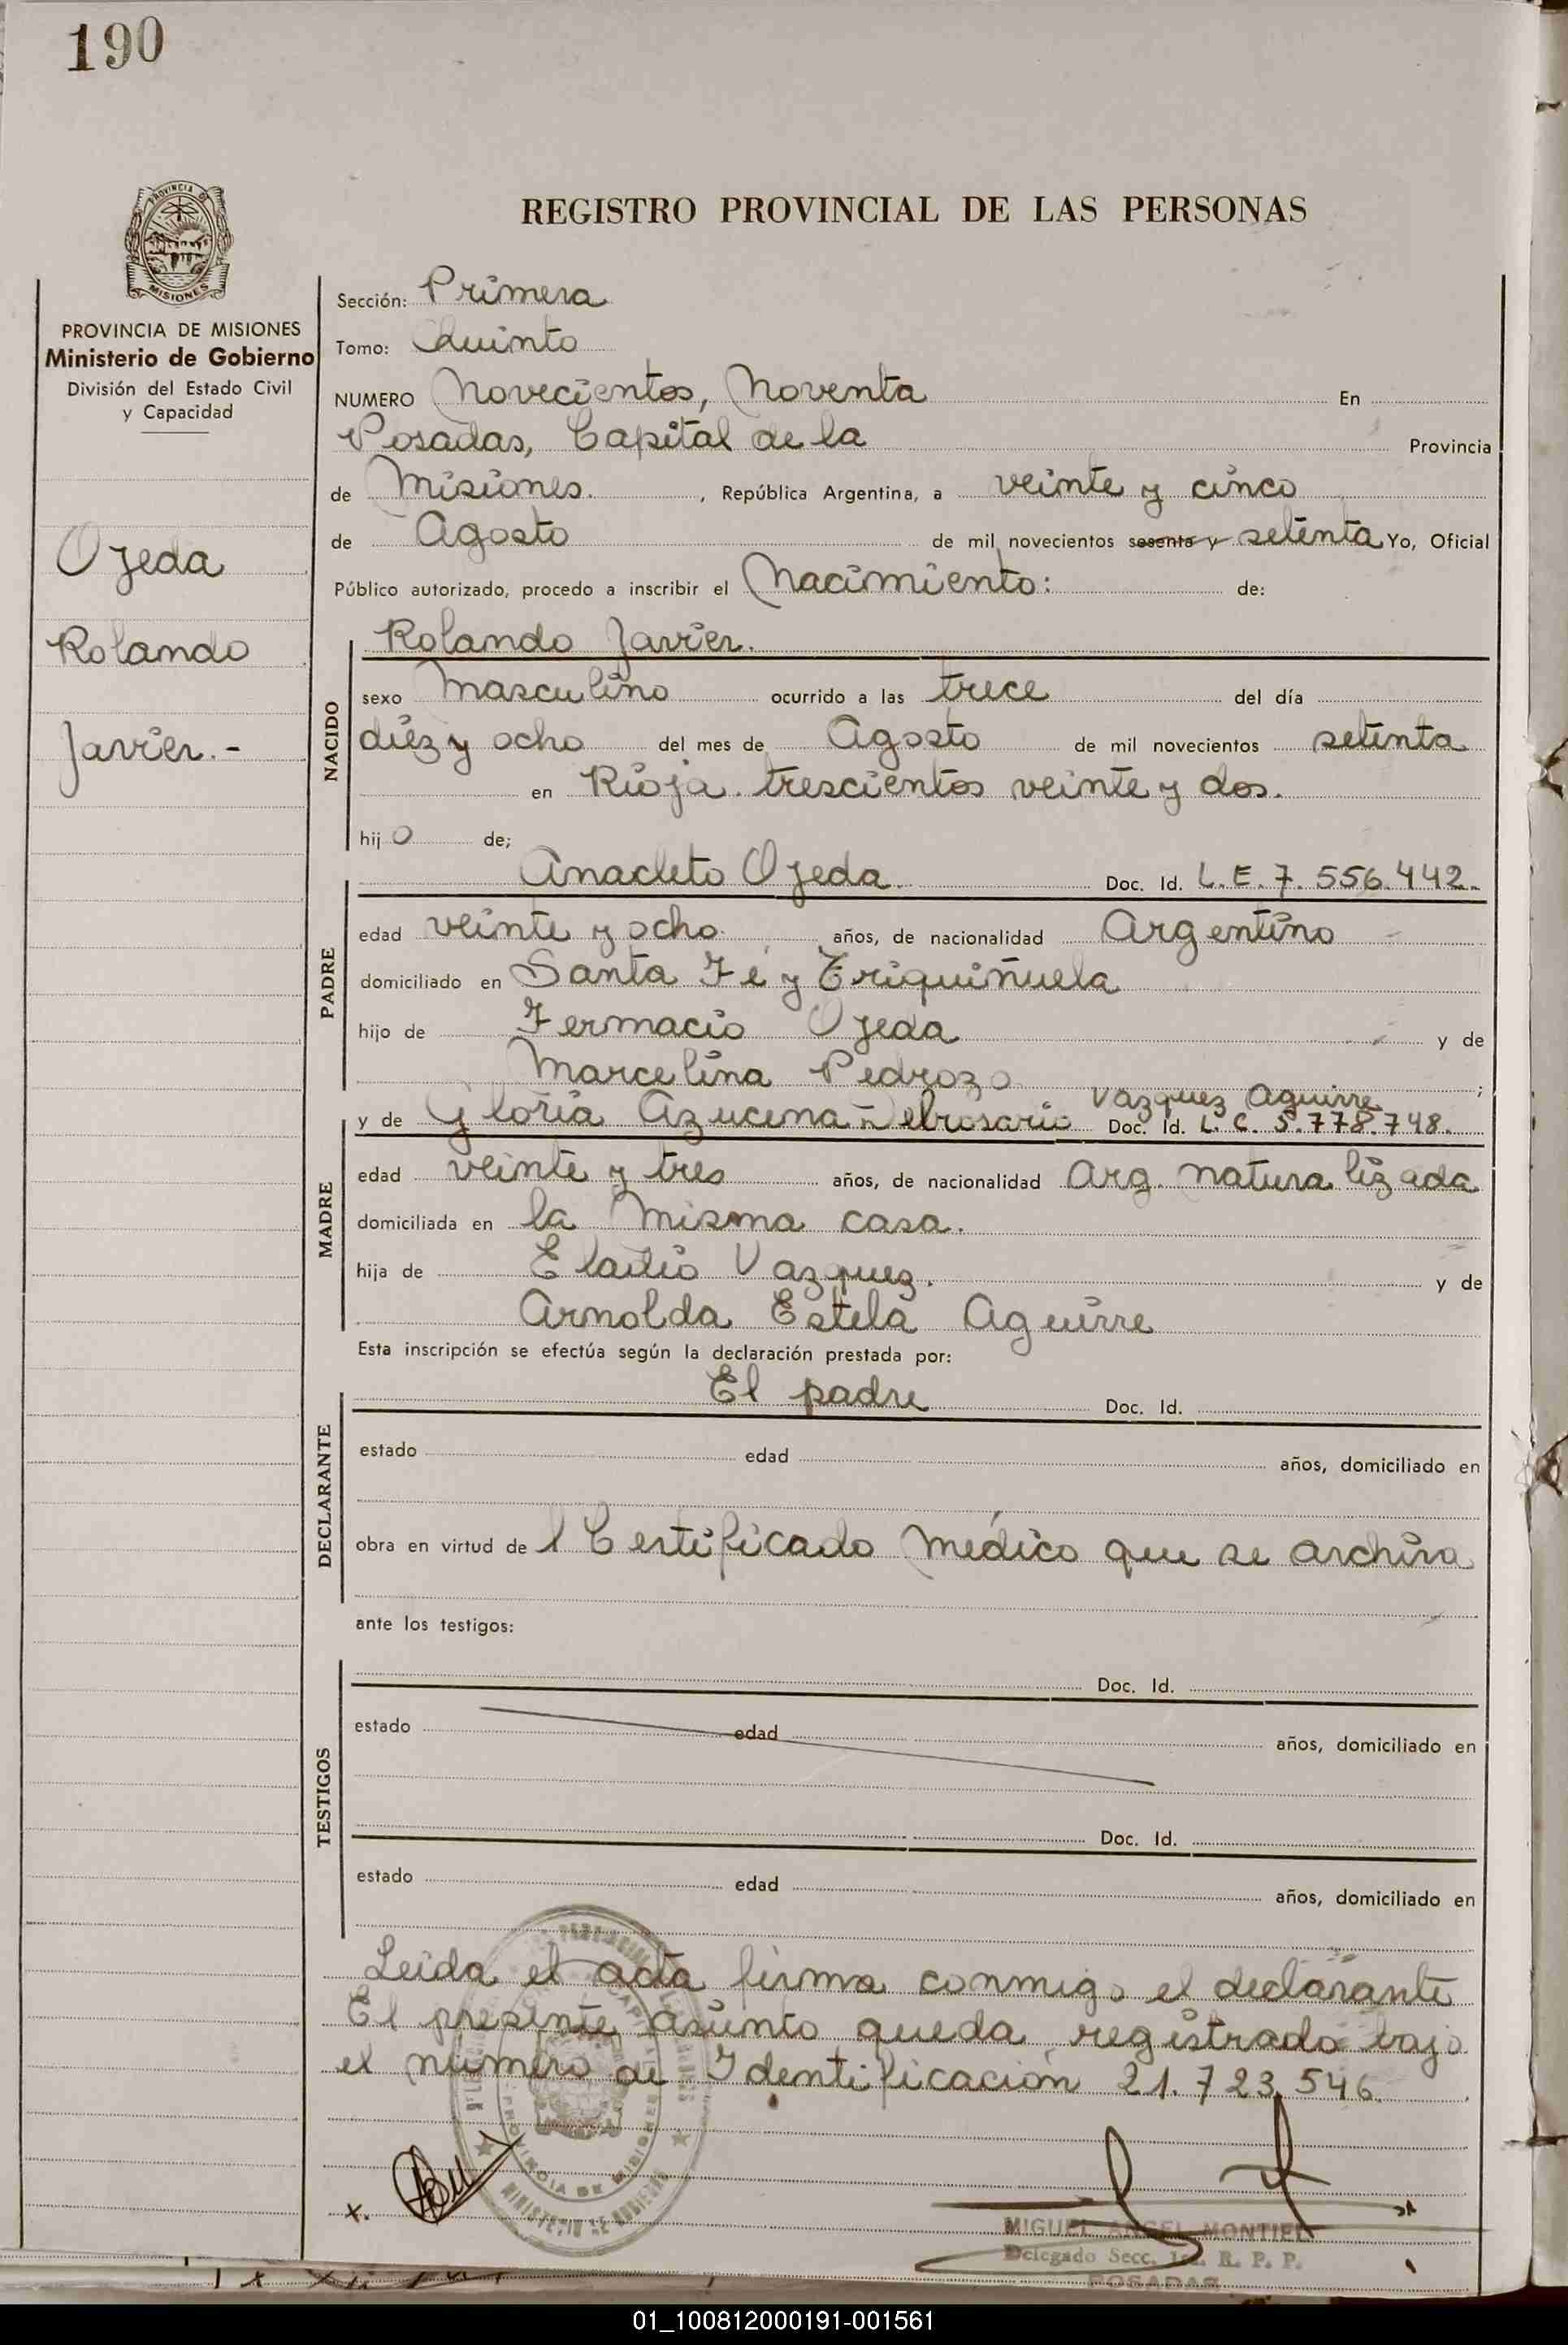 190
PROVINCIA DE
MISIONES
PROVINCIA DE MISIONES
Ministerio de Gobierno
División del Estado Civil
y Capacidad
Ojeda
Rolando
Javier.-
REGISTRO PROVINCIAL DE LAS PERSONAS
Sección: Primera
Tomo: Quinto
NUMERO Novecientos, Noventa En
Posadas, Capital de la Provincia
de Misiones. , República Argentina, a veinte y cinco
de Agosto de mil novecientos sesenta y setenta Yo, Oficial
Público autorizado, procedo a inscribir el Nacimiento: de:
Rolando Javier.
NACIDO
sexo Masculino ocurrido a las trece del día
diez y ocho del mes de Agosto de mil novecientos setenta
en Rioja trescientos veinte y dos.
hijo de;
Anacleto Ojeda Doc. Id. L.E. 7.556.442.
PADRE
edad veinte y ocho años, de nacionalidad Argentino
domiciliado en Santa Fé y Triquiñuela
hijo de Fermacio Ojeda y de
Marcelina Pedrozo ;
Vazquez Aguirre
y de Gloria Azucena Delrosario Doc. Id. L.C. 5.778.748.
MADRE
edad veinte y tres años, de nacionalidad Arg. naturalizada
domiciliada en la misma casa.
hija de Eladio Vazquez. y de
Arnolda Estela Aguirre
Esta inscripción se efectúa según la declaración prestada por:
El padre Doc. Id.
DECLARANTE
estado edad años, domiciliado en
obra en virtud de l Certificado Médico que se archiva
ante los testigos:
Doc. Id.
TESTIGOS
estado edad años, domiciliado en
Doc. Id.
estado edad años, domiciliado en
Leida el acta firma conmigo el declarante
El presente asunto queda registrado bajo
el número de Identificación 21.723.546.
PROVINCIA DE MISIONES
MINISTERIO DE GOBIERNO
x.
MIGUEL ANGEL MONTIEL
Delegado Secc. R. P. P.
POSADAS
01_100812000191-001561